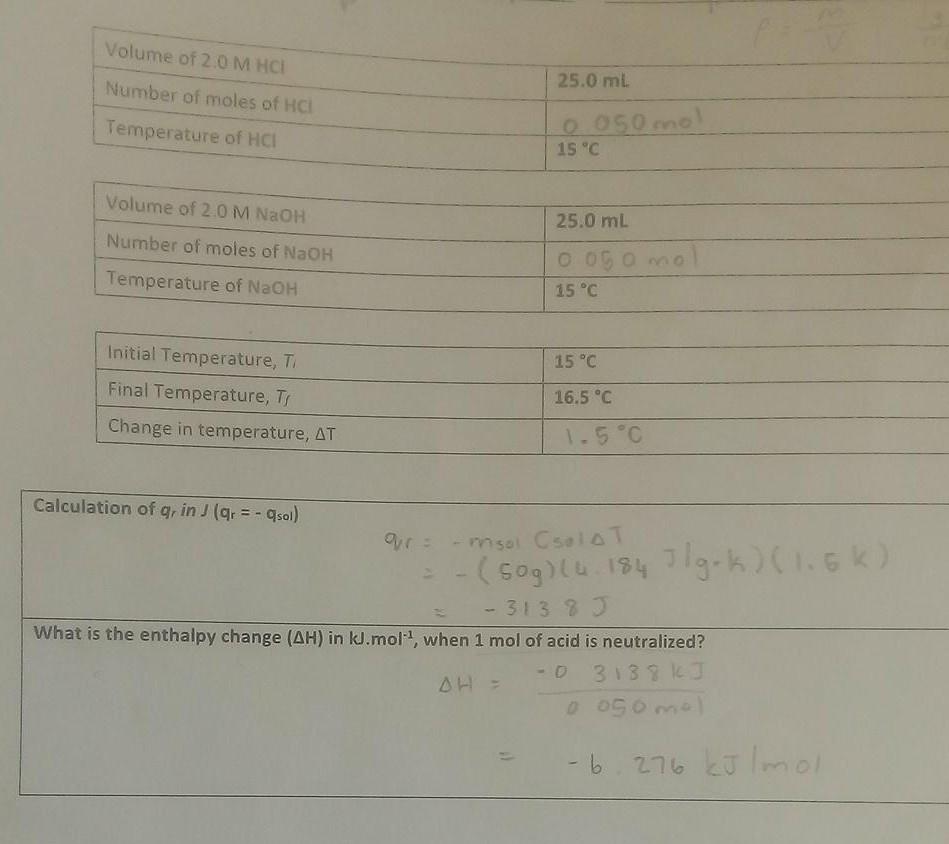 ρ = m
V
Volume of 2.0 M HCl 25.0 mL
Number of moles of HCl 0.050 mol
Temperature of HCl 15 °C
Volume of 2.0 M NaOH 25.0 mL
Number of moles of NaOH 0.050 mol
Temperature of NaOH 15 °C
Initial Temperature, Ti 15 °C
Final Temperature, Tf 16.5 °C
Change in temperature, ΔT 1.5 °C
Calculation of qr in J (qr = - qsol)
qr = - msol Csol ΔT
= - (50g)(4.184 J/g·K)(1.5 K)
= - 313.8 J
What is the enthalpy change (ΔH) in kJ.mol-1, when 1 mol of acid is neutralized?
ΔH = -0.3138 kJ
0.050 mol
= -6.276 kJ/mol